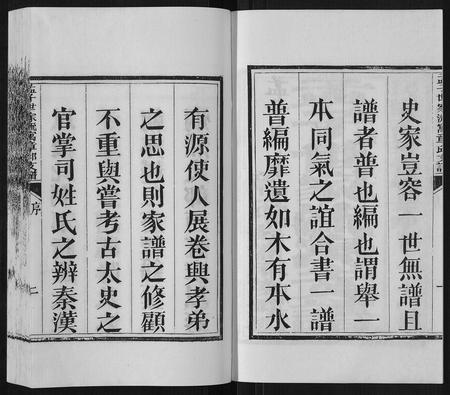 史家豈容一世無譜且
譜者普也編也謂舉一
本同氣之誼合書一譜
普編靡遺如木有本水
有源使人展卷興孝弟
之思也則家譜之修顧
不重與嘗考古太史之
官掌司姓氏之辨秦漢
序
二